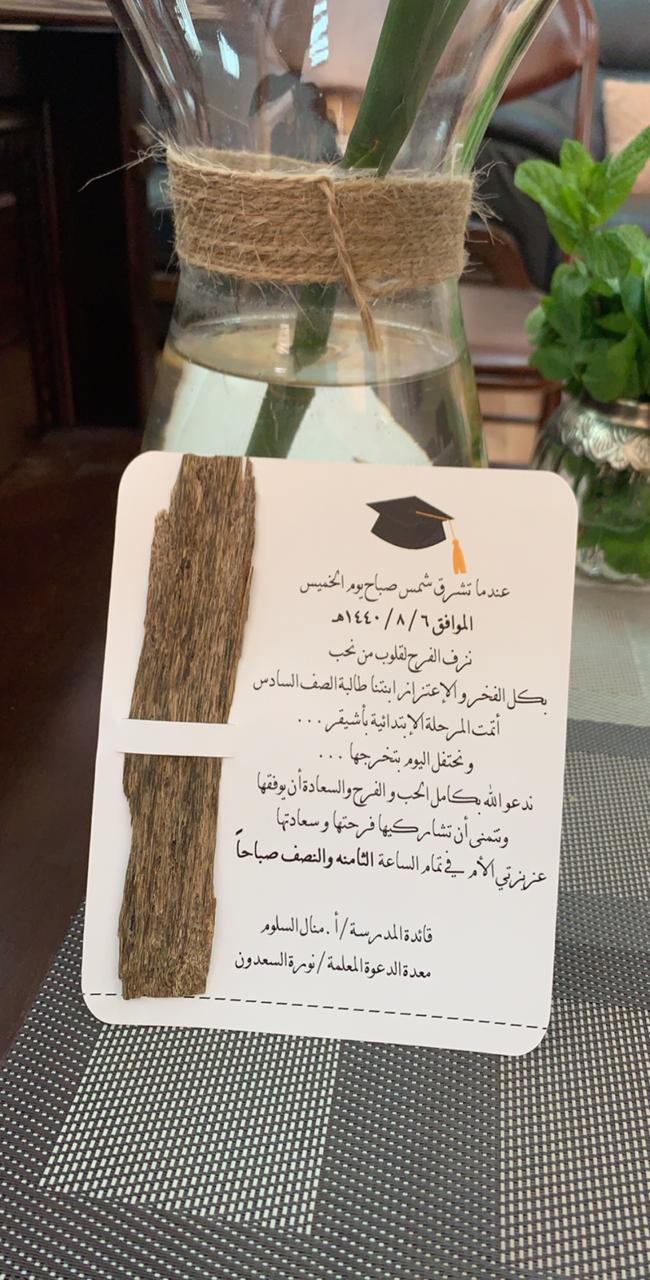 عندما تشرق شمس صباح يوم الخميس
الموافق ٦ / ٨ / ١٤٤٠هـ
نزف الفرح لقلوب من نحب
بكل الفخر و الإعتزاز ابنتنا طالبة الصف السادس
أتمت المرحلة الإبتدائية بأشيقر . . .
و نحتفل اليوم بتخرجها . . .
ندعو الله بكامل الحب و الفرح والسعادة أن يوفقها
ونتمنى أن تشاركيها فرحتها و سعادتها
عزيزتي الأم في تمام الساعة الثامنه والنصف صباحاً
قائدة المدرسة / أ . منال السلوم
معدة الدعوة المعلمة / نورة السعدون